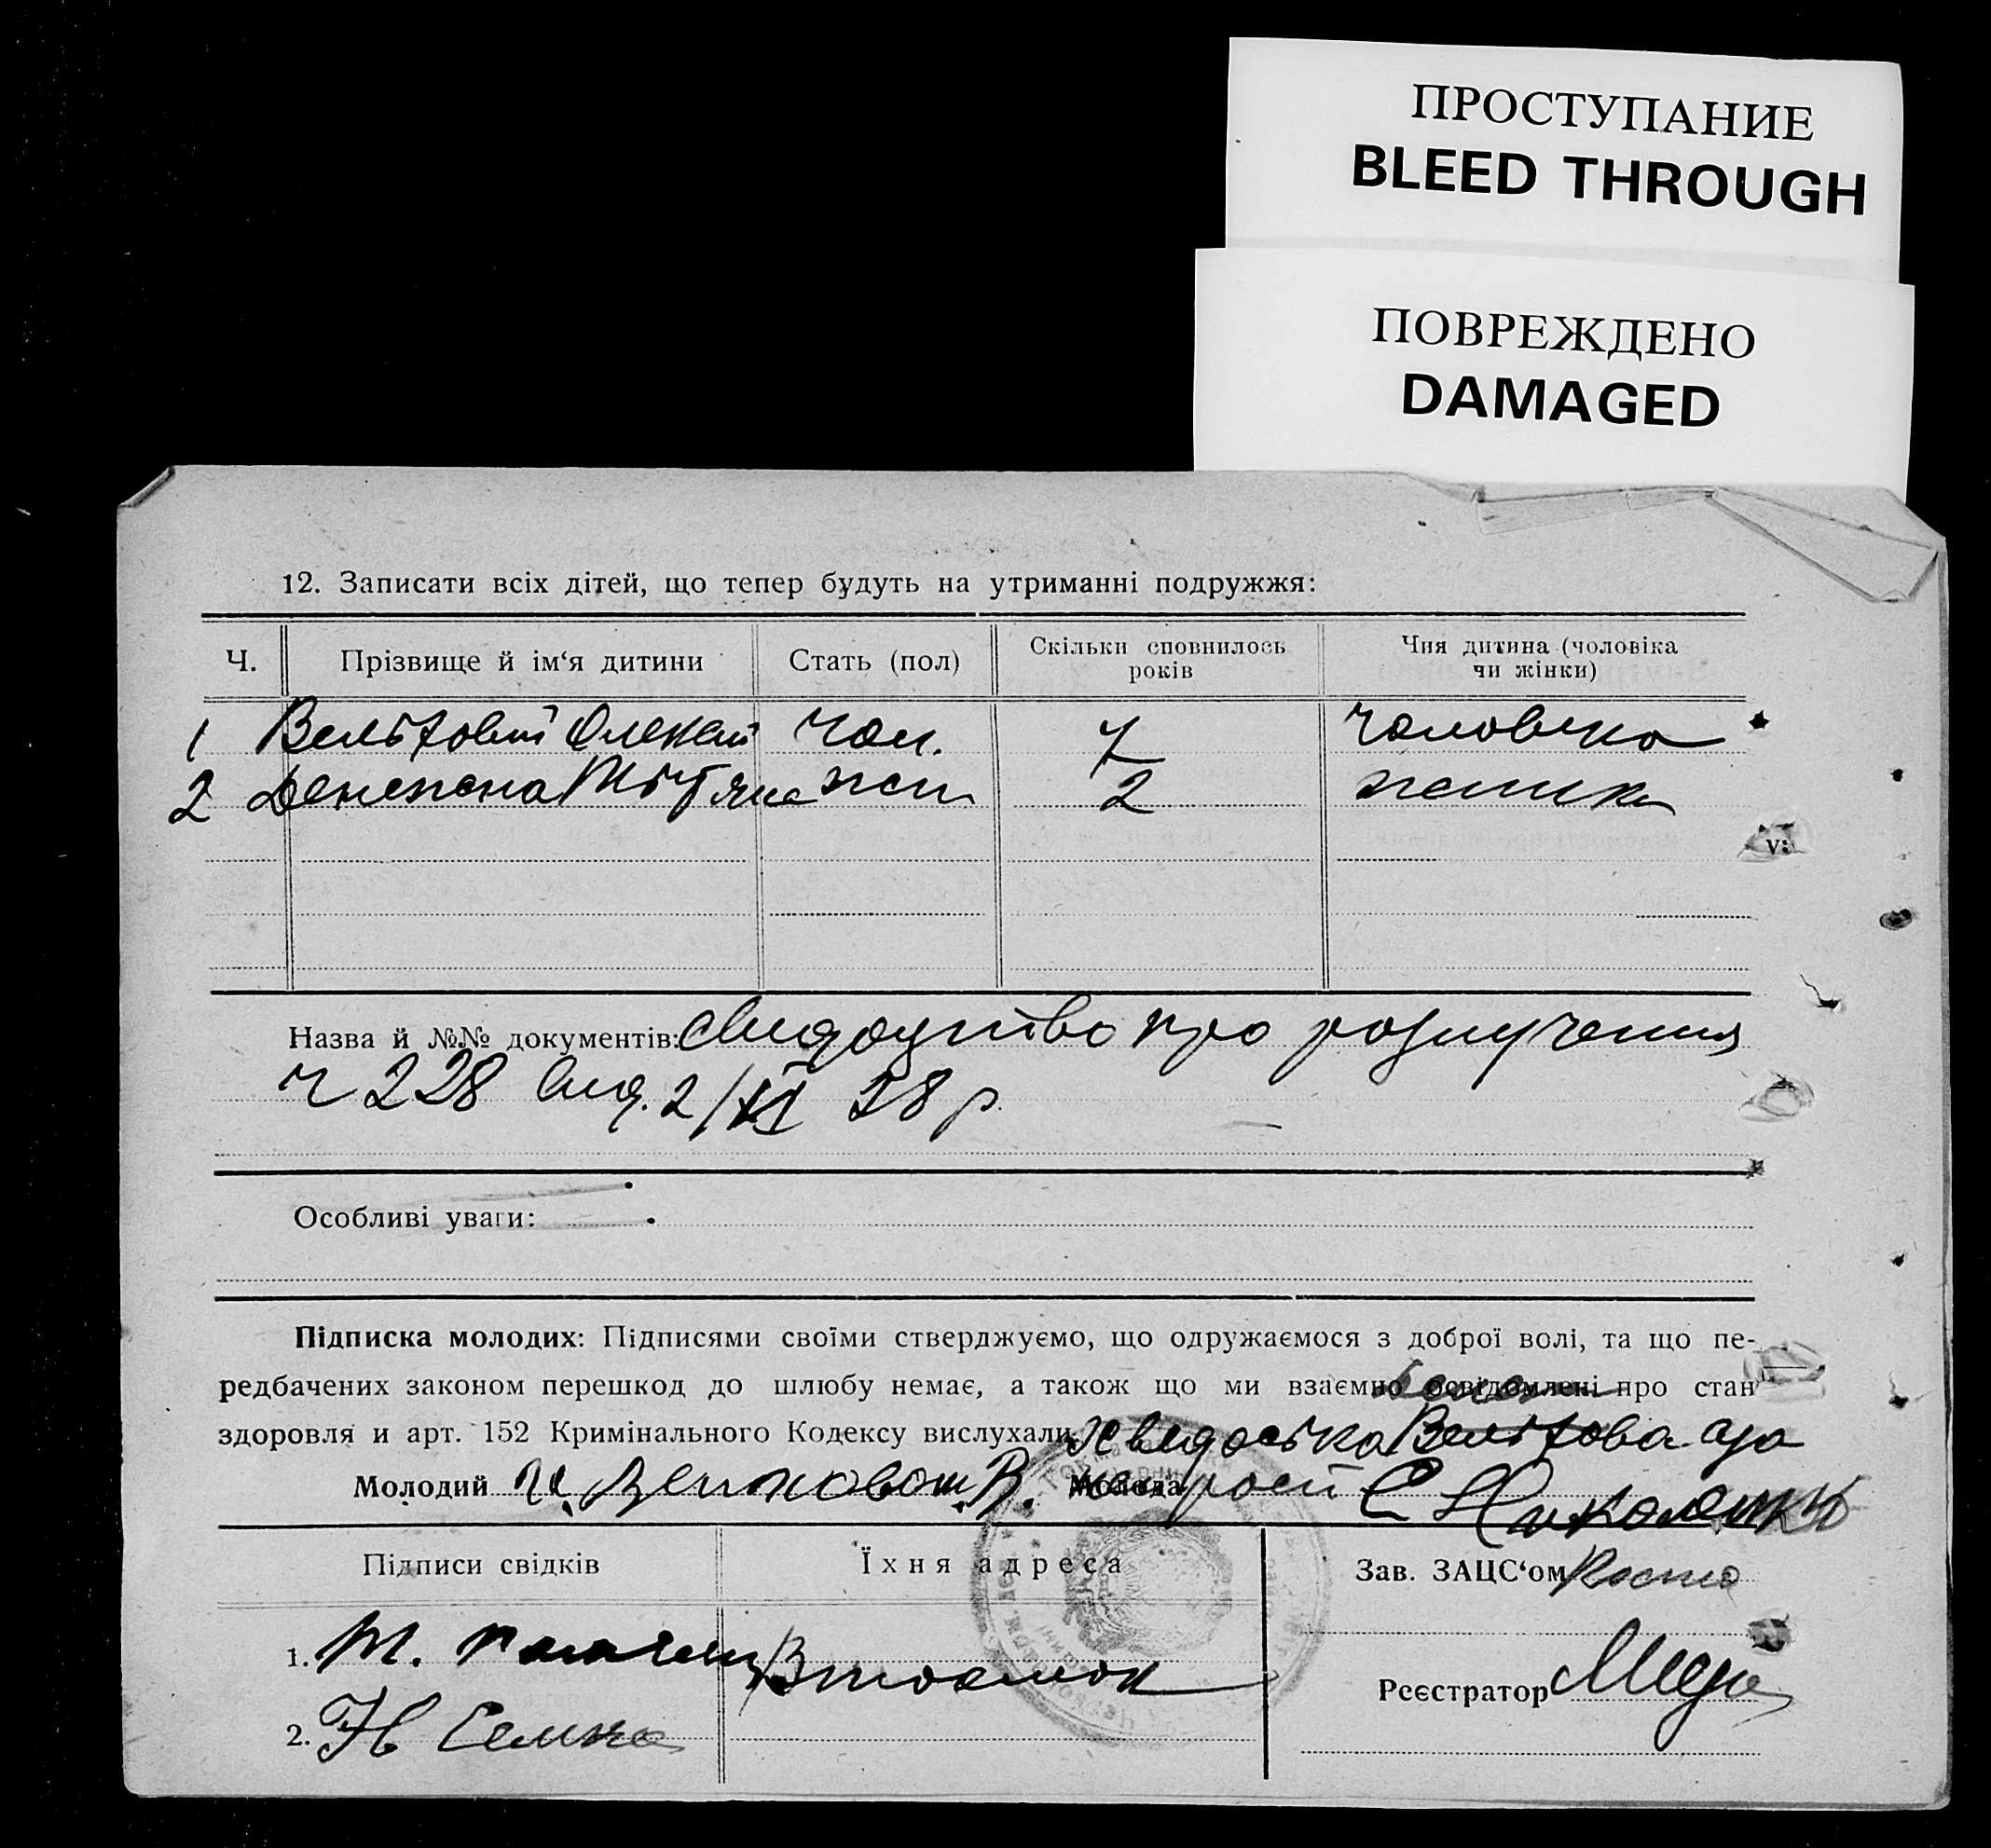 ПРОСТУПАНИЕ
BLEED THROUGH
ПОВРЕЖДЕНО
DAMAGED
12. Записати всіх дітей, що тепер будуть на утриманні подружжя:
Ч. Прізвище й ім‘я дитини Стать (пол) Скільки сповнилось років Чия дитина (чоловіка чи жінки)
1 Олексій чол. 7 чоловіка
2 жін 2 жінки
Назва й №№ документів: свидоцтво про розлучення
ч 228 вид. 2/XI 28 р.
Особливі уваги:
Підписка молодих: Підписями своїми стверджуємо, що одружаємося з доброї волі, та що пе-
редбачених законом перешкод до шлюбу немає, а також що ми взаємно освідомлені про стан
здоровля и арт. 152 Кримінального Кодексу вислухали.
Молодий Молода
Підписи свідків Їхня адреса Зав. ЗАЦС‘ом
1. М.
Реєстратор
2. Н